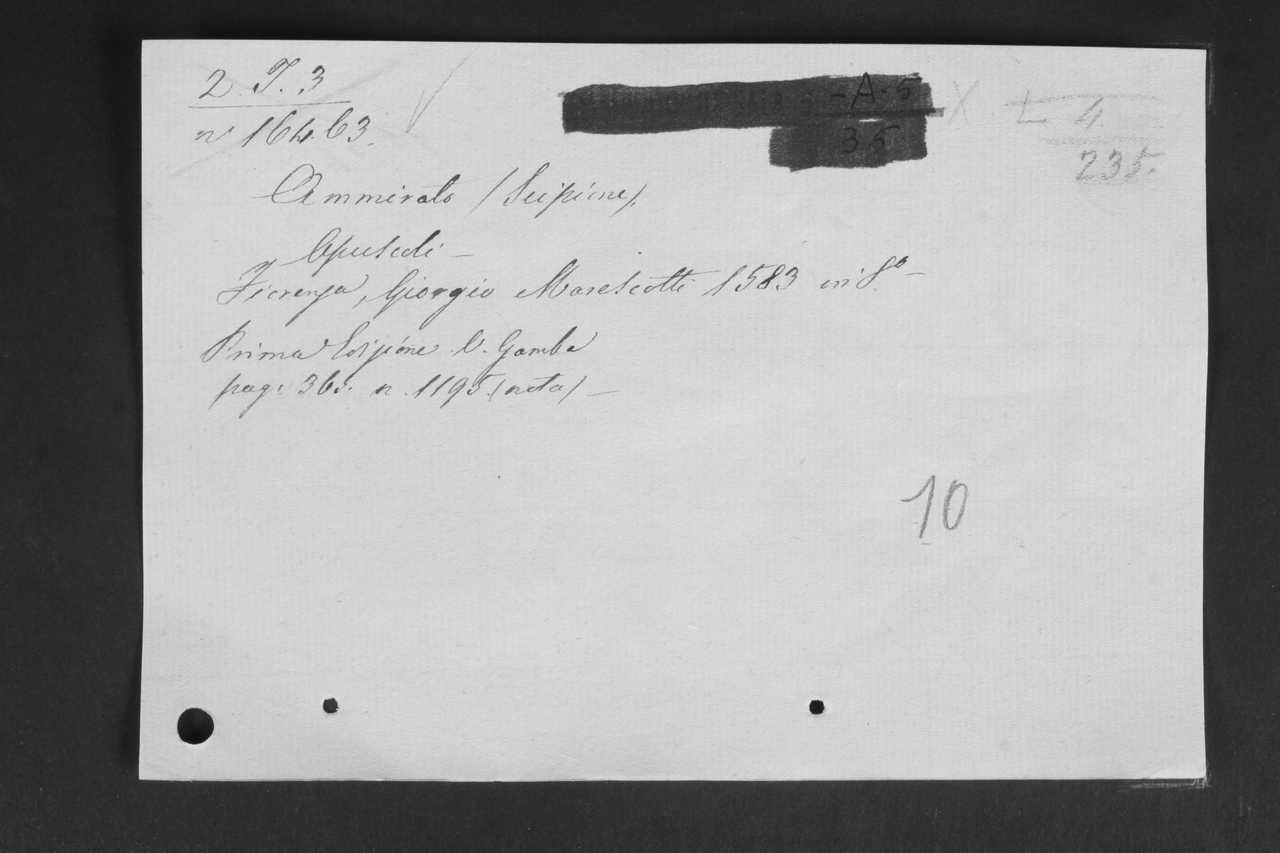 2. T. 3
-A-5
X L 4
n° 16463.
35
235.
Ammirato (Scipione).
Opuscoli -
Fiorenza, Giorgio Marescotti 1583 in 8° -
Prima Edizione. V. Gamba
pag: 365. n. 1195 (nota) -
10